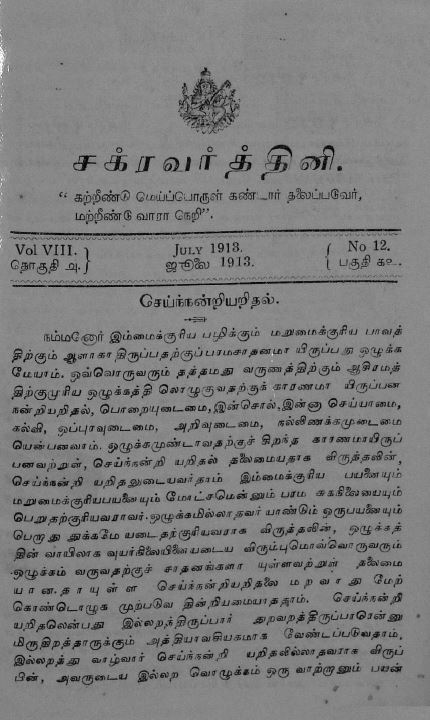 சக்ரவர்த்தினி.
“ கற்றீண்டு மெய்ப்பொருள் கண்டார் தலைப்படுவேர்,
மற்றீண்டு வாரா நெறி”.
Vol VIII. JULY 1913. No 12.
தொகுதி அ. ஜூலை 1913. பகுதி கஉ.
செய்ந்நன்றியறிதல்.
நம்மனோர் இம்மைக்குரிய பழிக்கும் மறுமைக்குரிய பாவத்
திற்கும் ஆளாகா திருப்பதற்குப் பரமசாதனமா யிருப்பது ஒழுக்க
மேயாம். ஒவ்வொருவரும் தத்தமது வருணத்திற்கும் ஆசிரமத்
திற்குமுரிய ஒழுக்கத்தி லொழுகுவதற்குக் காரணமா யிருப்பன
நன்றியறிதல், பொறையுடைமை, இன்சொல், இன்னா செய்யாமை,
கல்வி, ஒப்புரவுடைமை, அறிவுடைமை, நல்லிணக்கமுடைமை
யென்பனவாம். ஒழுக்கமுண்டாவதற்குச் சிறந்த காரணமாயிருப்
பனவற்றுள், செய்ந்நன்றி யறிதல் தலைமையதாக விருத்தலின்,
செய்ந்நன்றி யறிதலுடையவர்தாம் இம்மைக்குரிய பயனையும்
மறுமைக்குரியபயனையும் மோட்சமென்னும் பரம சுகநிலையையும்
பெறுதற்குரியவராவர். ஒழுக்கமில்லாதவர் யாண்டும் ஒருபயனையும்
பெறாது துக்கமே யடைதற்குரியவராக விருத்தலின், ஒழுக்கத்
தின் வாயிலாக வுயர்நிலையினையடைய விரும்புமொவ்வொருவரும்
ஒழுக்கம் வருவதற்குச் சாதனங்களா யுள்ளவற்றுள் தலைமை
யானதாயுள்ள செய்ந்நன்றியறிதலை மறவாது மேற்
கொண்டொழுக முற்படுவ தின்றியமையாததாம். செய்ந்நன்றி
யறிதலென்பது இல்லறந்திருப்பார் துறவறத்திருப்பாரென்னு
மிருதிறத்தாருக்கும் அத்தியாவசியகமாக வேண்டப்படுவதாம்,
இல்லறத்து வாழ்வார் செய்ந்நன்றி யறிதலில்லாதவராக விருப்
பின், அவருடைய இல்லற வொழுக்கம் ஒரு வாற்றானும் பயன்